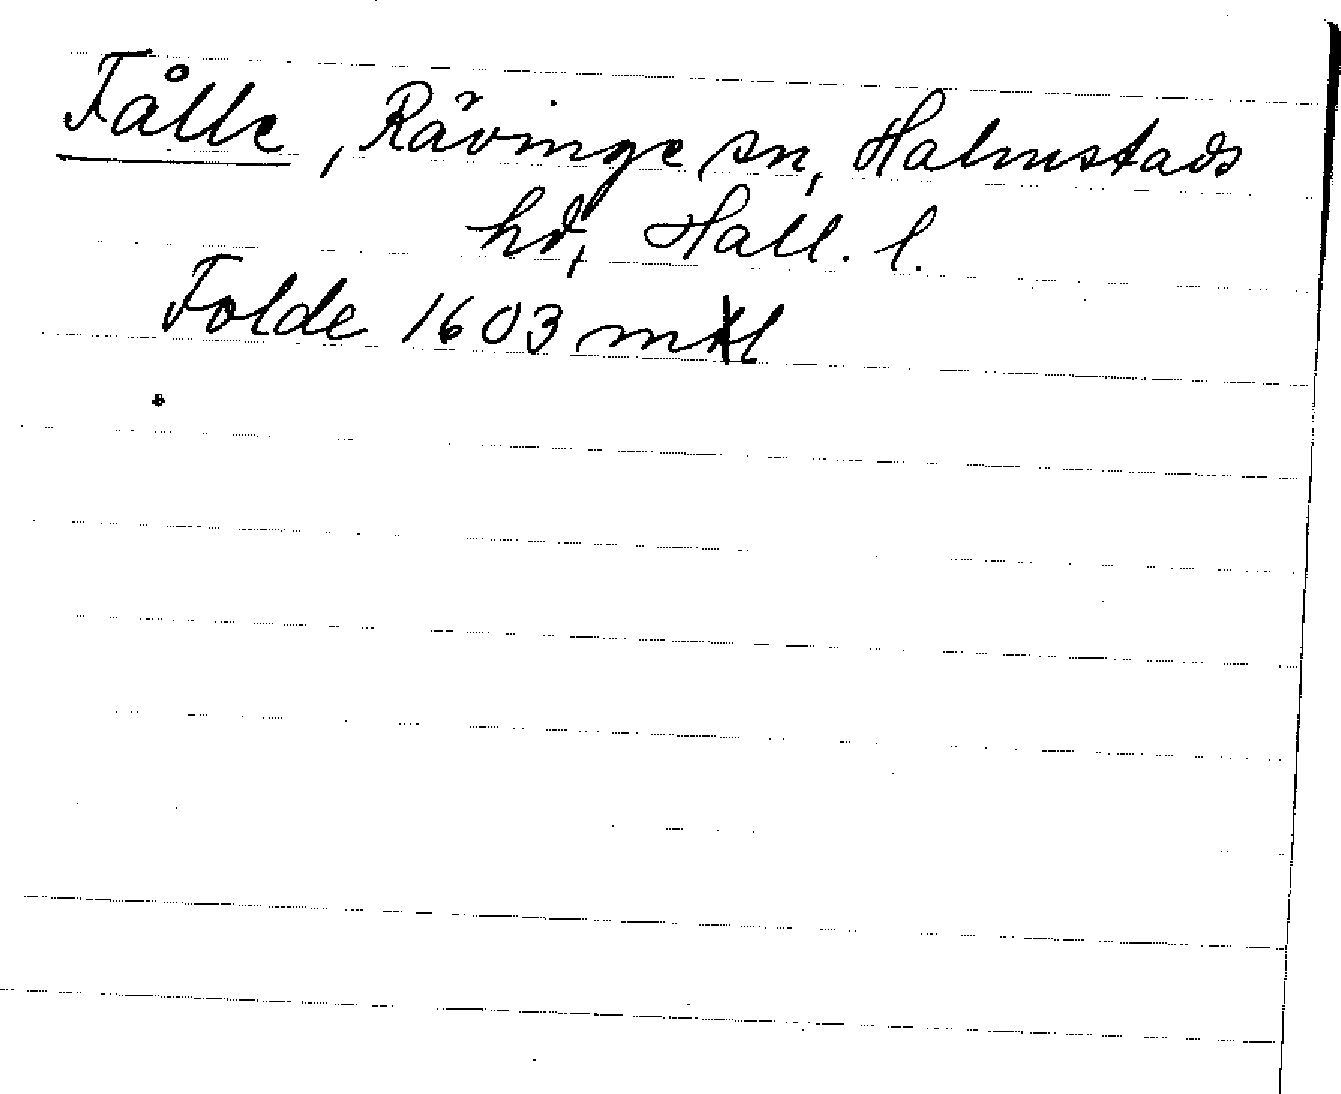 Fålle, Rävinge sn, Halmstads
hd, Hall. l.
Folde 1603 mkl